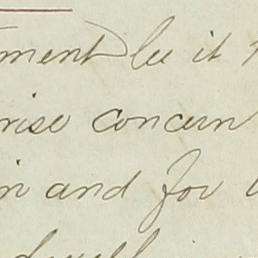 ment be it
rise concern
in and for